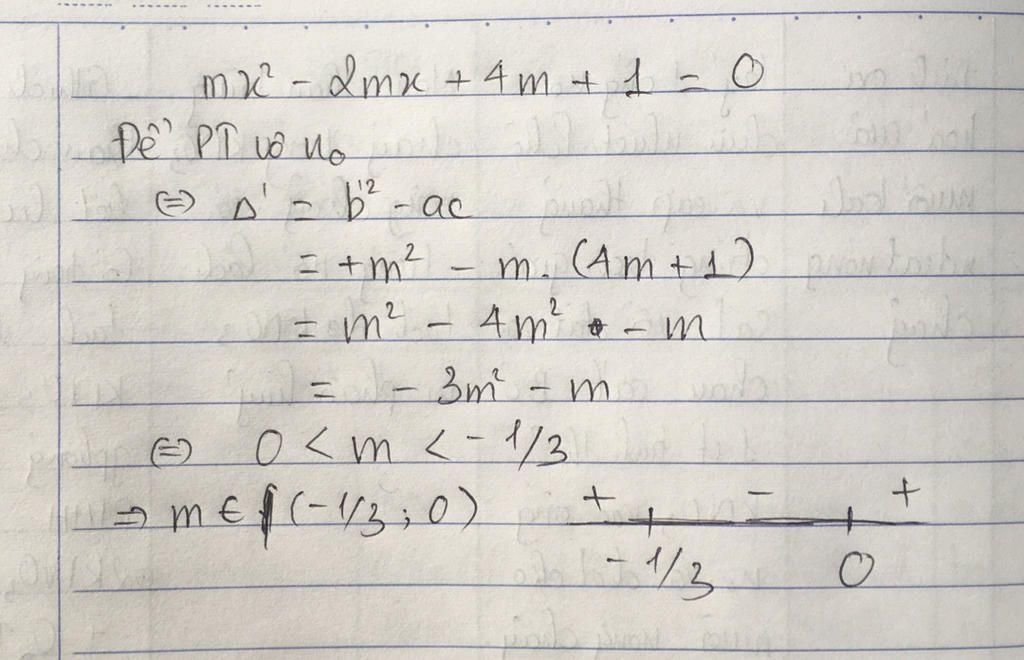 mx² - 2mx + 4m + 1 = 0
Để PT vô n₀
⇔ Δ' = b'² - ac
= +m² - m. (4m + 1)
= m² - 4m² - m
= - 3m² - m
⇔ 0 < m < - 1/3
⇒ m ∈ (-1/3 ; 0) + - +
- 1/3 0